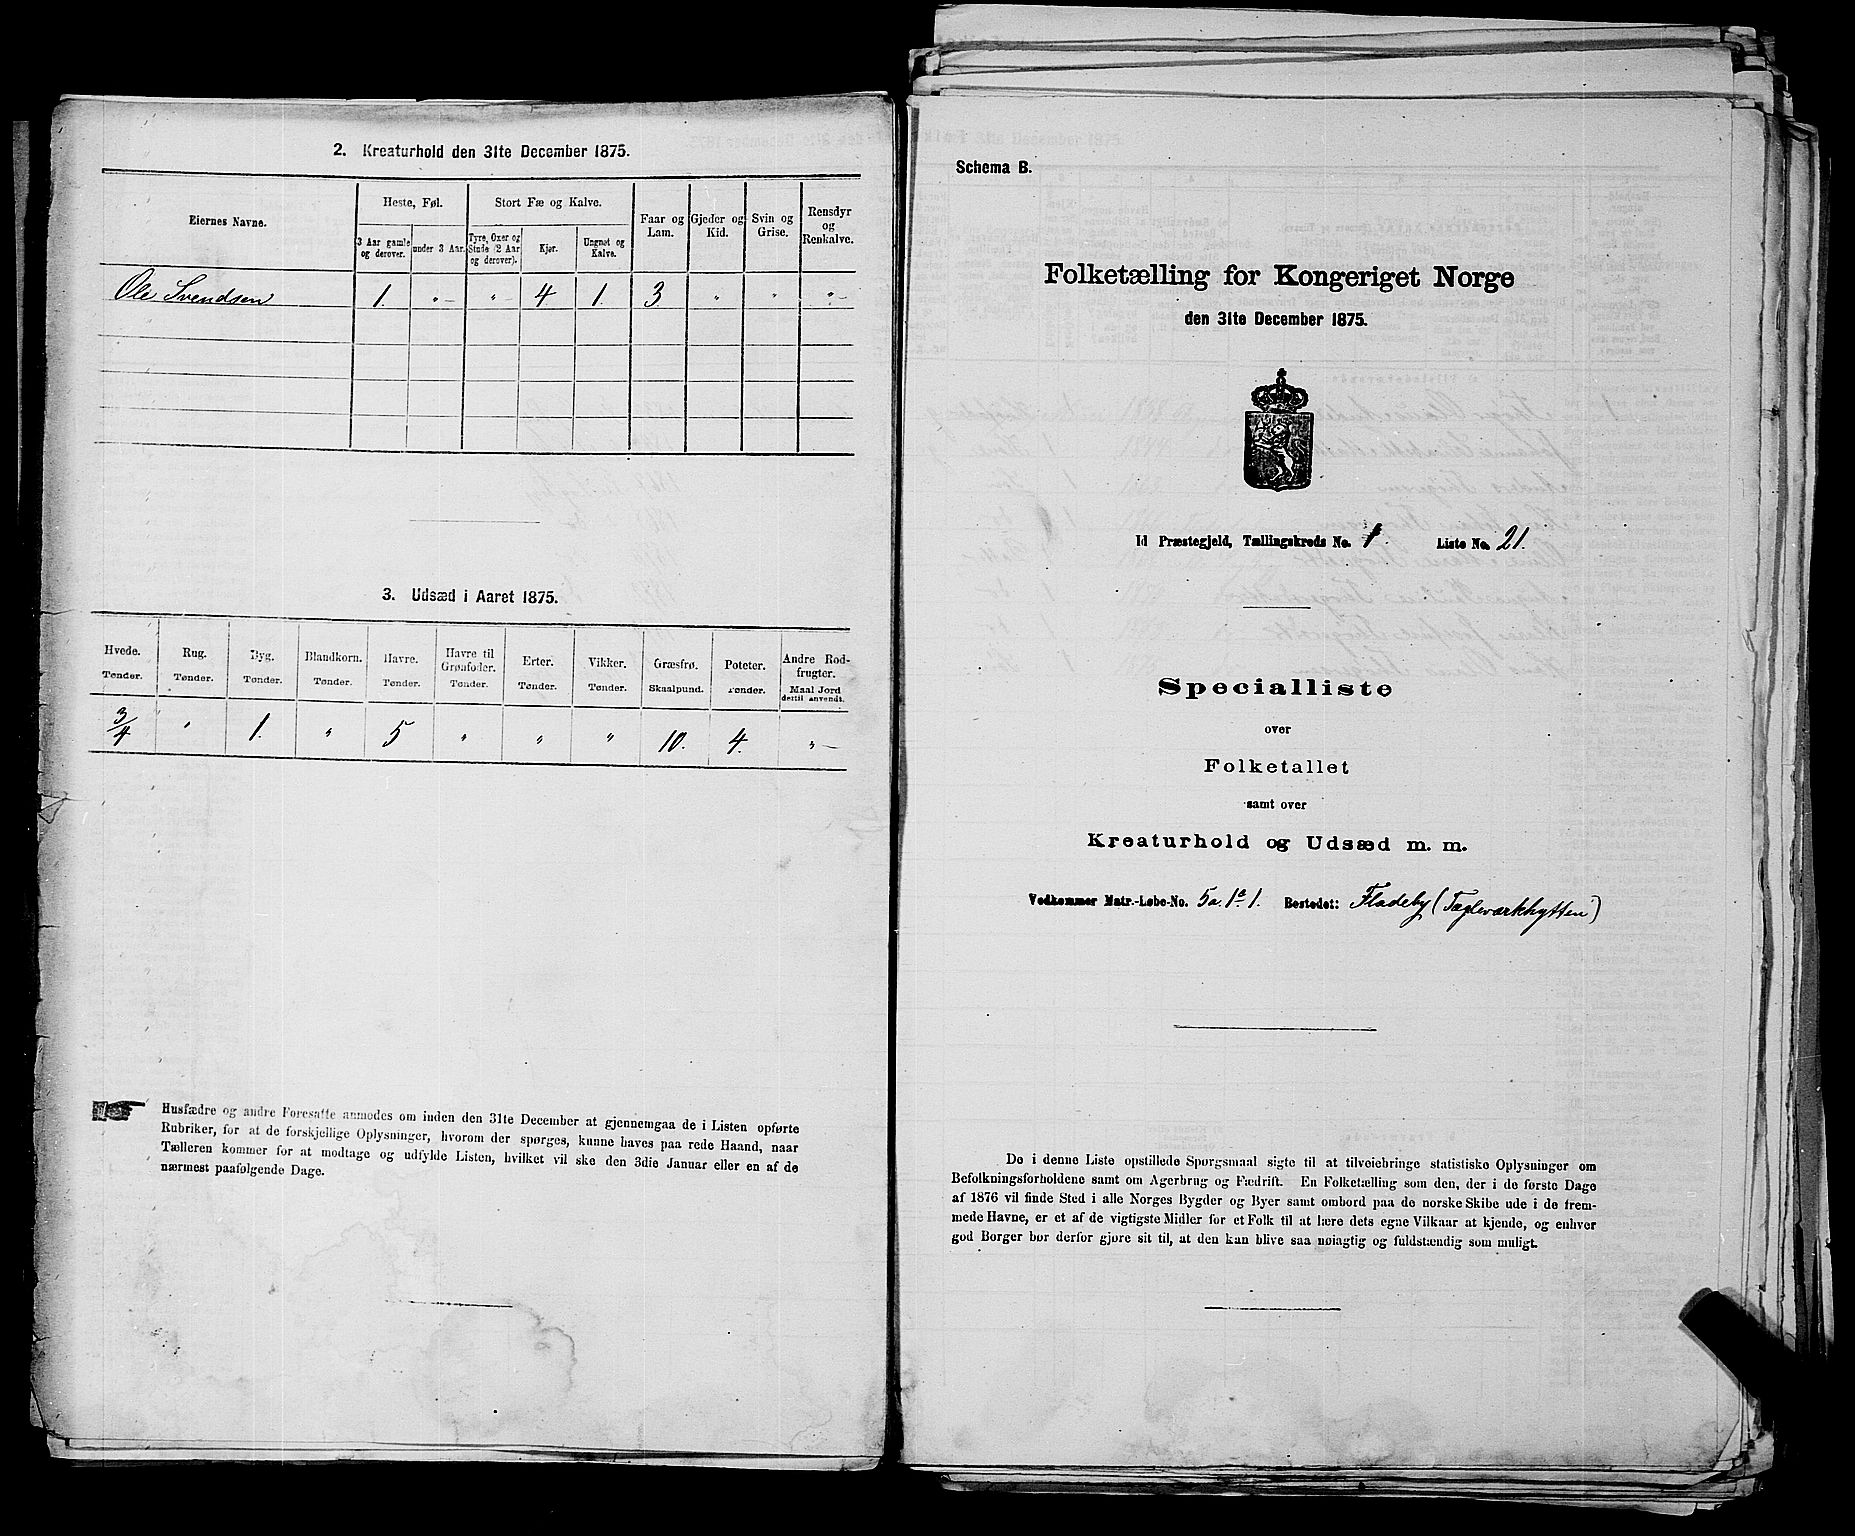 2. Kreaturhold den 31te December 1875.
Eiernes Navne.
Heste, Føl.
Stort Fæ og Kalve.
Faar og Lam.
Gjeder og Kid.
Svin og Grise.
Rensdyr og Renkalve.
3 Aar gamle og derover.
under 3 Aar.
Tyre, Oxer og Stude (2 Aar og derover).
Kjør.
Ungnøt og Kalve.
Ole Svendsen 1. " " 4 1. 3 " " "
3. Udsæd i Aaret 1875.
Hvede. Rug. Byg. Blandkorn. Havre. Havre til Grønfoder. Erter. Vikker. Græsfrø. Poteter. Andre Rodfrugter.
Tønder. Tønder. Tønder. Tønder. Tønder. Tønder. Tønder. Tønder. Skaalpund. Tønder. Maal Jord dertil anvendt.
3/4 " 1. " 5 " " " 10. 4. "
Husfædre og andre Foresatte anmodes om inden den 31te December at gjennemgaa de i Listen opførte
Rubriker, for at de forskjellige Oplysninger, hvorom der spørges, kunne haves paa rede Haand, naar
Tælleren kommer for at modtage og udfylde Listen, hvilket vil ske den 3die Januar eller en af de
nærmest paafølgende Dage.
Schema B.
Folketælling for Kongeriget Norge
den 31te December 1875.
Id Præstegjeld, Tællingskreds No. 1. Liste No. 21.
Specialliste
over
Folketallet
samt over
Kreaturhold og Udsæd m. m.
Vedkommer Matr.-Løbe-No. 5a. 1e 1. Bostedet: Fladeby (Taglværkhytten)
De i denne Liste opstillede Spørgsmaal sigte til at tilveiebringe statistiske Oplysninger om
Befolkningsforholdene samt om Agerbrug og Fædrift. En Folketælling som den, der i de første Dage
af 1876 vil finde Sted i alle Norges Bygder og Byer samt ombord paa de norske Skibe ude i de frem-
mede Havne, er et af de vigtigste Midler for et Folk til at lære dets egne Vilkaar at kjende, og enhver
god Borger bør derfor gjøre sit til, at den kan blive saa nøiagtig og fuldstændig som muligt.